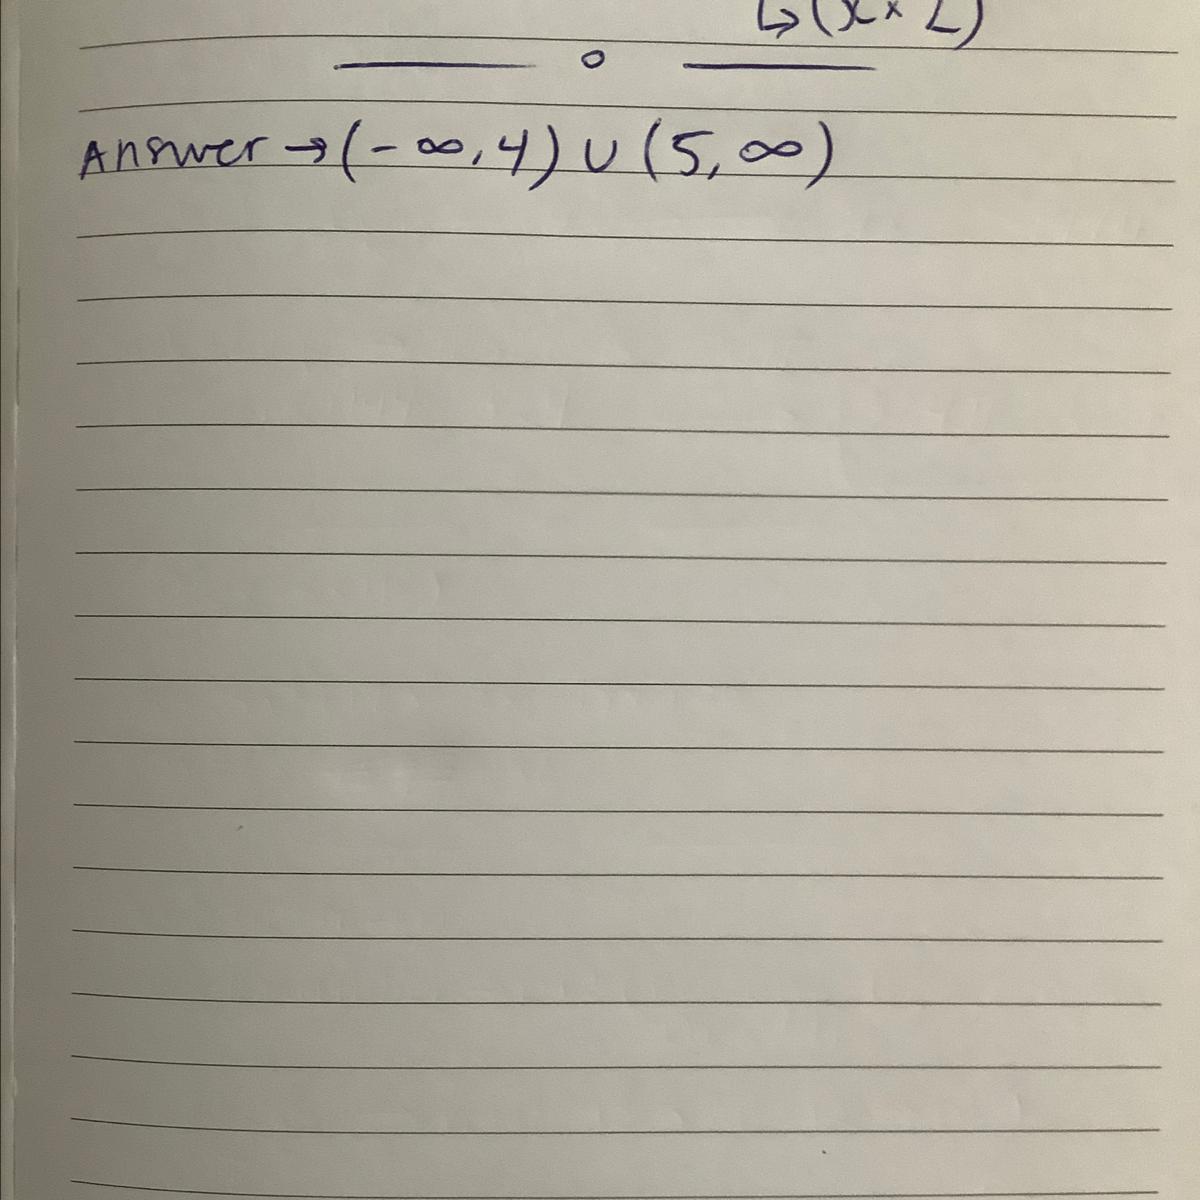 ↳(x×2)
Answer → (-∞,4) ∪ (5,∞)